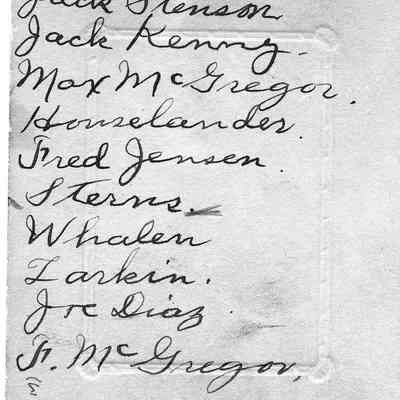 Jack Stenson
Jack Kenny.
Max McGregor.
Houselander.
Fred Jensen.
Sterns.
Whalen
Larkin.
Joe Diaz.
F. McGregor,